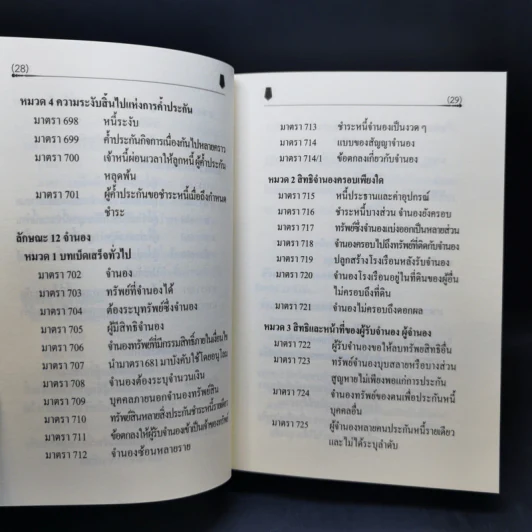 (28)
หมวด 4 ความระงับสิ้นไปแห่งการค้ำประกัน
มาตรา 698 หนี้ระงับ
มาตรา 699 ค้ำประกันกิจการเนื่องกันไปหลายคราว
มาตรา 700 เจ้าหนี้ผ่อนเวลาให้ลูกหนี้ ผู้ค้ำประกัน
หลุดพ้น
มาตรา 701 ผู้ค้ำประกันขอชำระหนี้เมื่อถึงกำหนด
ชำระ
ลักษณะ 12 จำนอง
หมวด 1 บทเบ็ดเสร็จทั่วไป
มาตรา 702 จำนอง
มาตรา 703 ทรัพย์ที่จำนองได้
มาตรา 704 ต้องระบุทรัพย์ซึ่งจำนอง
มาตรา 705 ผู้มีสิทธิจำนอง
มาตรา 706 จำนองทรัพย์ที่มีกรรมสิทธิ์ภายในเงื่อนไข
มาตรา 707 นำมาตรา 681 มาบังคับใช้โดยอนุโลม
มาตรา 708 จำนองต้องระบุจำนวนเงิน
มาตรา 709 บุคคลภายนอกจำนองทรัพย์สิน
มาตรา 710 ทรัพย์สินหลายสิ่งประกันชำระหนี้รายเดียว
มาตรา 711 ข้อตกลงให้ผู้รับจำนองเข้าเป็นเจ้าของทรัพย์
มาตรา 712 จำนองซ้อนหลายราย
(29)
มาตรา 713 ชำระหนี้จำนองเป็นงวด ๆ
มาตรา 714 แบบของสัญญาจำนอง
มาตรา 714/1 ข้อตกลงเกี่ยวกับจำนอง
หมวด 2 สิทธิจำนองครอบเพียงใด
มาตรา 715 หนี้ประธานและค่าอุปกรณ์
มาตรา 716 ชำระหนี้บางส่วน จำนองยังครอบ
มาตรา 717 ทรัพย์ซึ่งจำนองแบ่งออกเป็นหลายส่วน
มาตรา 718 จำนองครอบไปถึงทรัพย์ที่ติดกับจำนอง
มาตรา 719 ปลูกสร้างโรงเรือนหลังรับจำนอง
มาตรา 720 จำนองโรงเรือนอยู่ในที่ดินของผู้อื่น
ไม่ครอบถึงที่ดิน
มาตรา 721 จำนองไม่ครอบถึงดอกผล
หมวด 3 สิทธิและหน้าที่ของผู้รับจำนอง ผู้จำนอง
มาตรา 722 ผู้รับจำนองขอให้ลบทรัพยสิทธิอื่น
มาตรา 723 ทรัพย์จำนองบุบสลายหรือบางส่วน
สูญหายไม่เพียงพอแก่การประกัน
มาตรา 724 จำนองทรัพย์ของตนเพื่อประกันหนี้
บุคคลอื่น
มาตรา 725 ผู้จำนองหลายคนประกันหนี้รายเดียว
และไม่ได้ระบุลำดับ